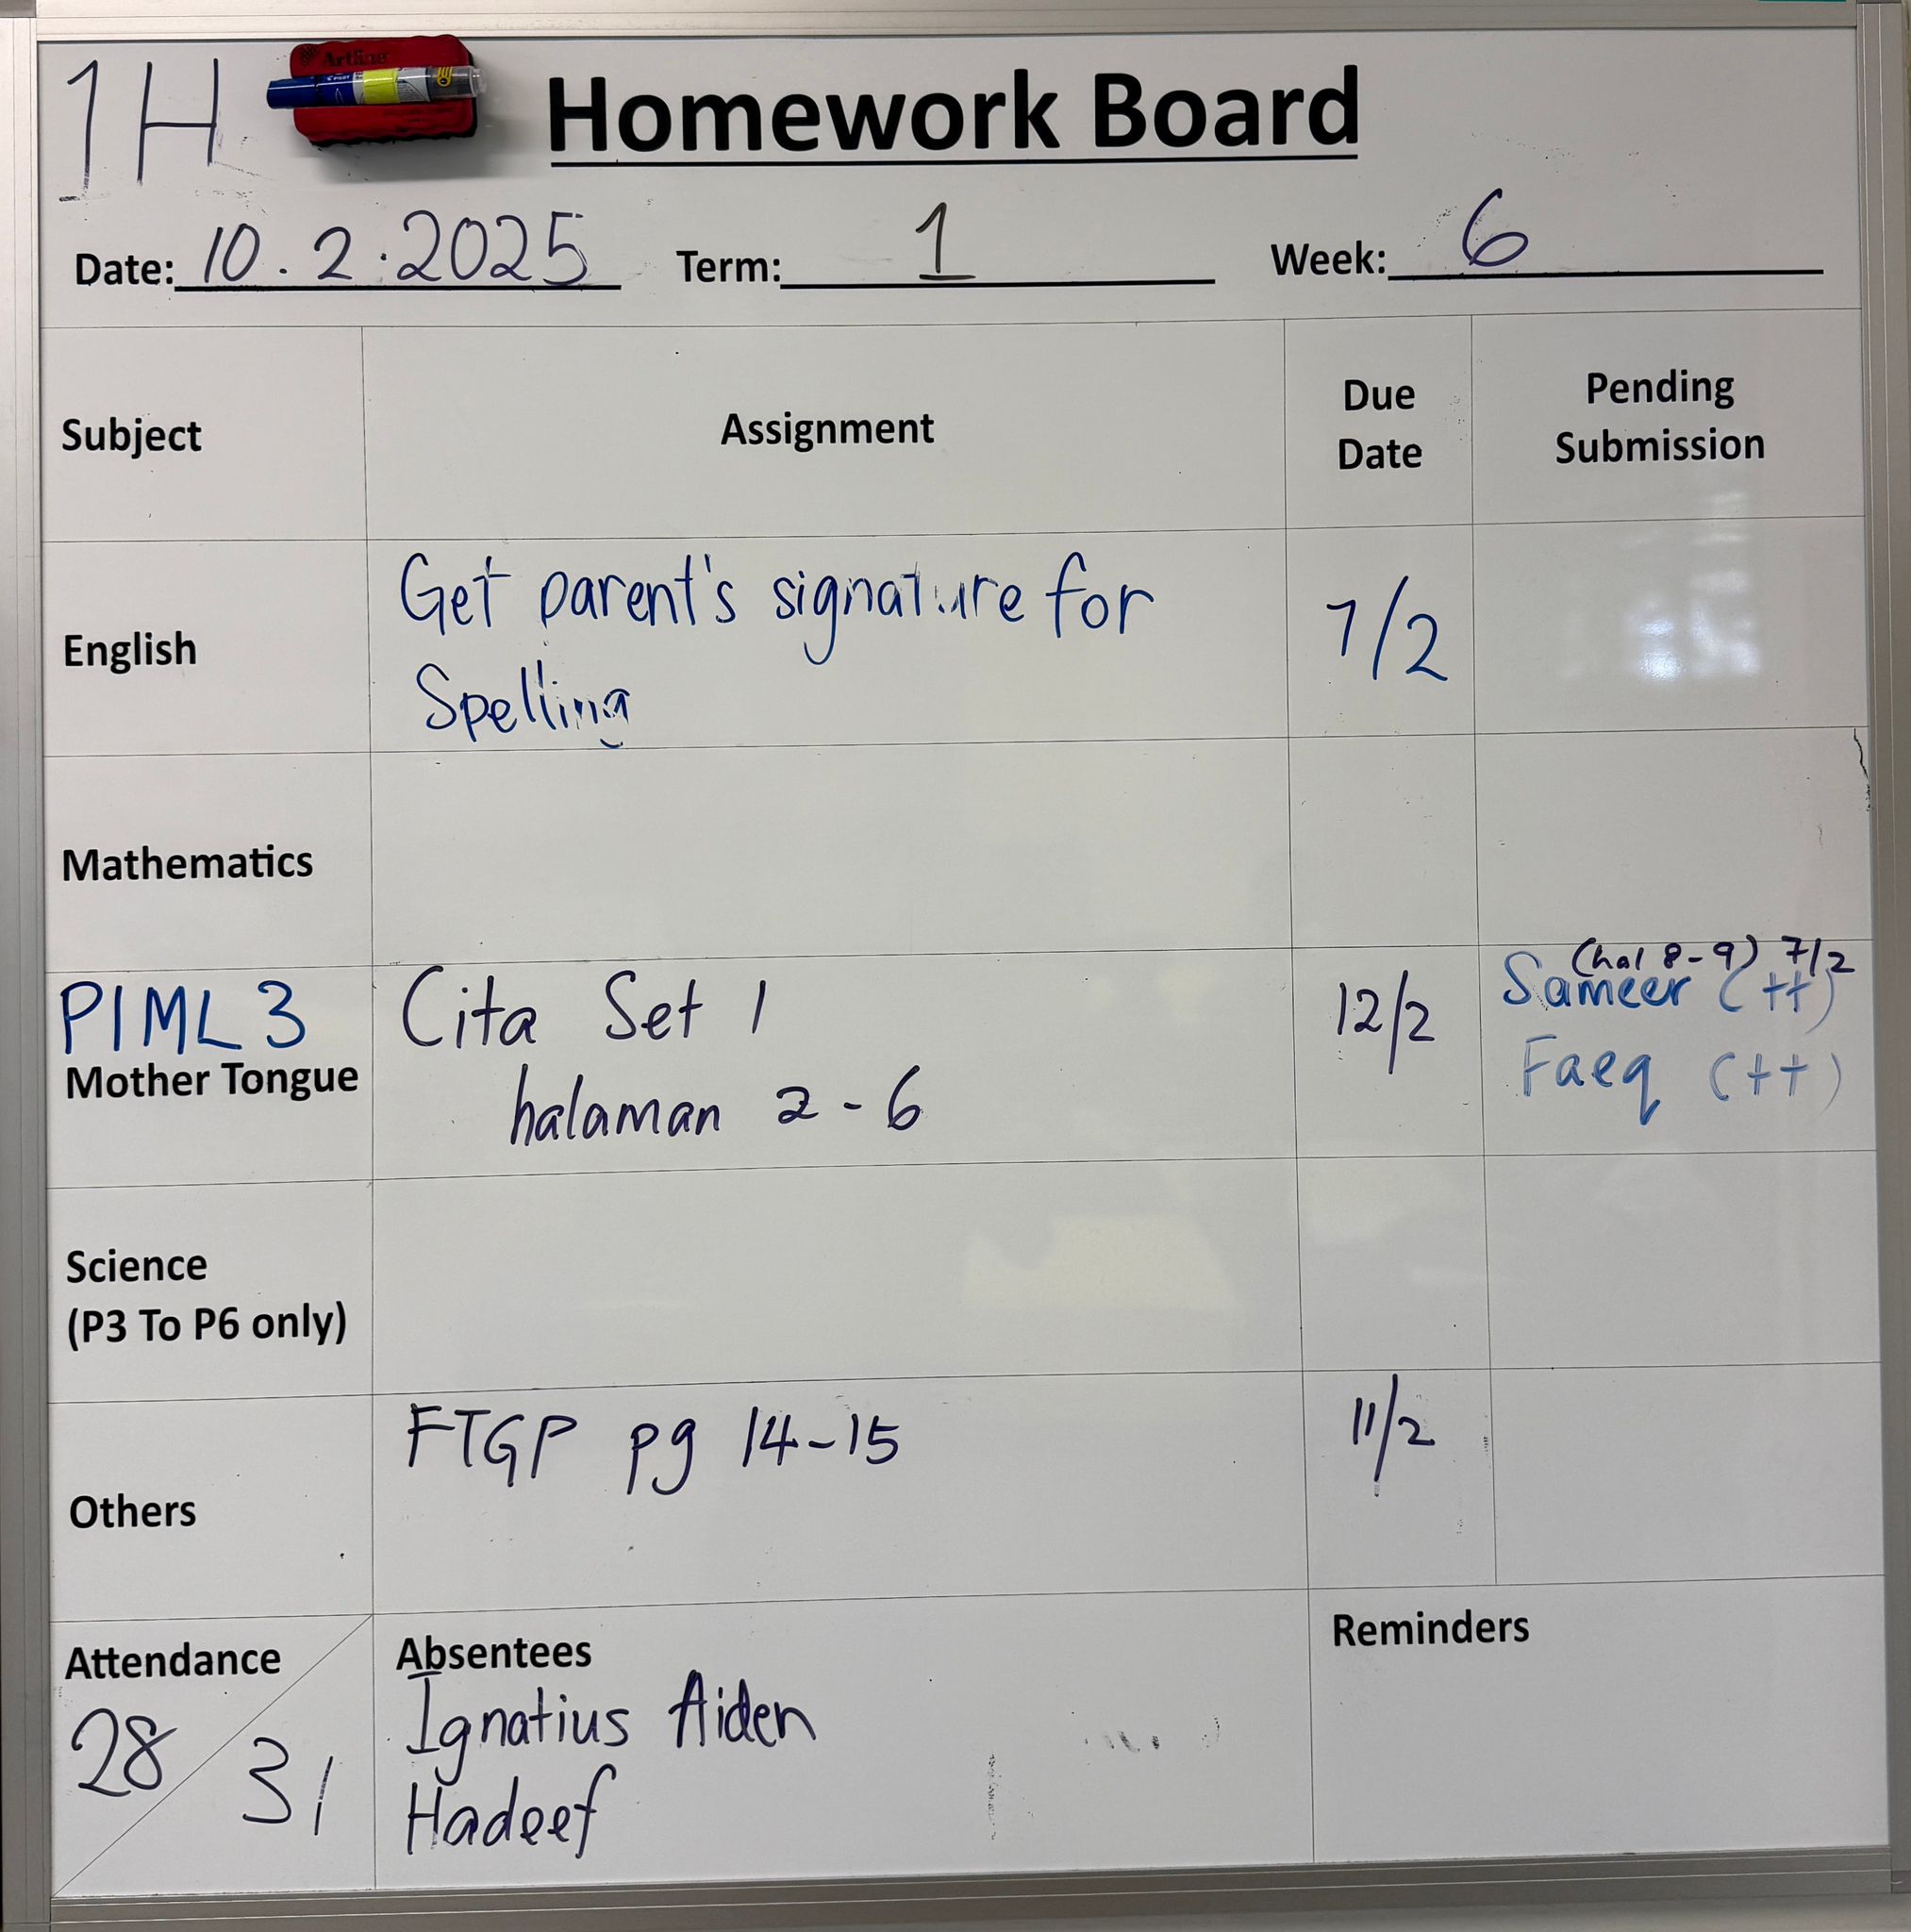 1H
Artline
PILOT
Homework Board
Date: 10.2.2025 Term: 1 Week: 6
Subject Assignment Due Date Pending Submission
English Get parent's signature for Spelling 7/2
Mathematics
PIML 3
Mother Tongue
Cita Set 1
halaman 2-6
12/2
(hal 8-9) 7/2
Sameer (++)
Faeq (++)
Science
(P3 To P6 only)
Others
FTGP pg 14-15
11/2
Attendance
28/31
Absentees
Ignatius Aiden
Hadeef
Reminders